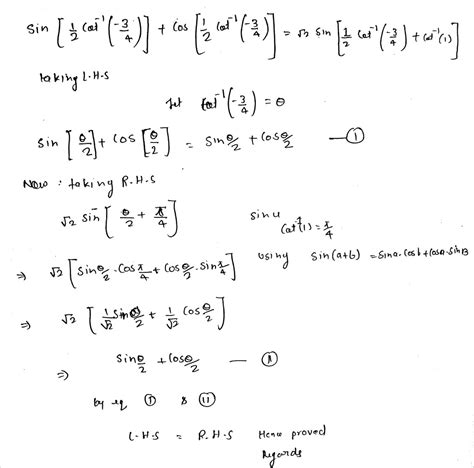 Sin [ 1/2 Cot⁻¹ (-3/4) ] + Cos [ 1/2 Cot⁻¹ (-3/4) ] = √2 Sin [ 1/2 Cot⁻¹ (-3/4) + Cot⁻¹(1) ]
taking L.H.S
Let Cot⁻¹ (-3/4) = θ
Sin [ θ/2 ] + Cos [ θ/2 ] = Sin θ/2 + Cos θ/2 — Ⓘ
Now : taking R.H.S
√2 Sin [ θ/2 + π/4 ] Since Cot⁻¹(1) = π/4
⇒ √2 [ Sin θ/2 . Cos π/4 + Cos θ/2 . Sin π/4 ] using Sin(a+b) = Sina.Cosb + Cosa.SinB
⇒ √2 [ 1/√2 Sin θ/2 + 1/√2 Cos θ/2 ]
⇒ Sin θ/2 + Cos θ/2 — Ⓘ︎I
by eq Ⓘ & ⑪
L.H.S = R.H.S Hence proved
Regards